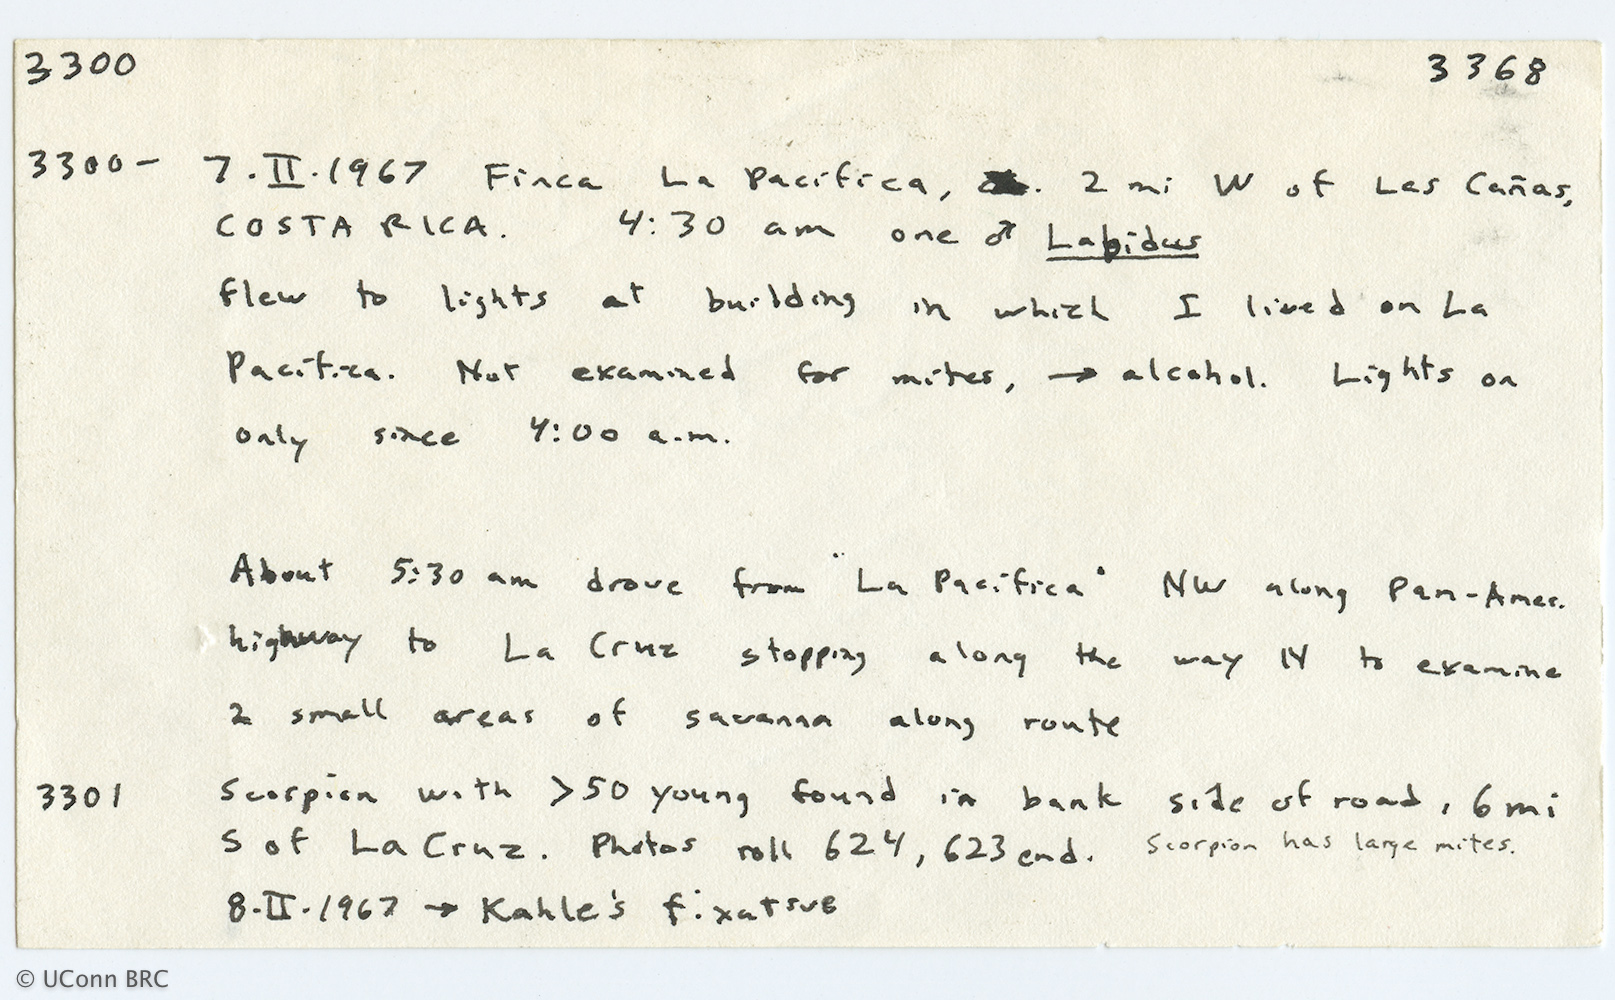 3300 3368
3300- 7.II.1967 Finca La Pacifica, 2 mi W of Las Cañas,
COSTA RICA. 4:30 am one ♂ Labidus
flew to lights at building in which I lived on La
Pacifica. Not examined for mites, → alcohol. Lights on
only since 4:00 a.m.
About 5:30 am drove from "La Pacifica" NW along Pan-Amer.
highway to La Cruz stopping along the way N to examine
2 small areas of savanna along route
3301 Scorpion with >50 young found in bank side of road, 6 mi
S of La Cruz. Photos roll 624, 623 end. Scorpion has large mites.
8.II.1967 → Kahle's fixative
© UConn BRC